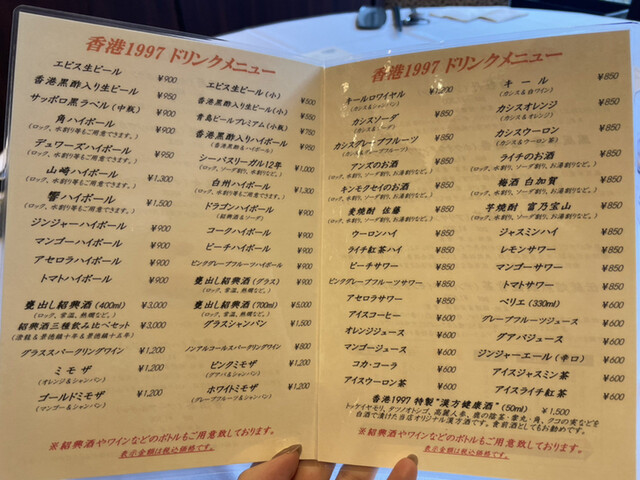 香港1997 ドリンクメニュー
エビス生ビール ¥900
香港黒酢入り生ビール ¥950
サッポロ黒ラベル（中瓶） ¥900
角ハイボール ¥900
（ロック、水割り等もご用意できます。）
デュワーズハイボール ¥950
（ロック、水割り等もご用意できます。）
山崎ハイボール ¥1,300
（ロック、水割り等もご用意できます。）
響ハイボール ¥1,500
（ロック、水割り等もご用意できます。）
ジンジャーハイボール ¥900
マンゴーハイボール ¥900
アセロラハイボール ¥900
トマトハイボール ¥900
甕出し紹興酒（400ml） ¥3,000
（ロック、常温、熱燗など。）
紹興酒三種飲み比べセット ¥3,000
グラススパークリングワイン ¥1,200
ミモザ ¥1,200
（オレンジ＆シャンパン）
ゴールドミモザ ¥1,200
（マンゴー＆シャンパン）
エビス生ビール（小） ¥500
香港黒酢入り生ビール（小） ¥550
青島ビールプレミアム（小瓶） ¥750
香港黒酢入りハイボール ¥900
（香港黒酢＆ハイボール）
シーバスリーガル12年 ¥1,000
（ロック、水割り等もご用意できます。）
白州ハイボール ¥1,300
（ロック、水割り等もご用意できます。）
ドラゴンハイボール ¥900
（紹興酒＆ソーダ）
コークハイボール ¥900
ピーチハイボール ¥900
ピンクグレープフルーツハイボール ¥900
甕出し紹興酒（グラス） ¥900
（ロック、常温、熱燗など。）
甕出し紹興酒（700ml） ¥5,000
（ロック、常温、熱燗など。）
グラスシャンパン ¥1,500
ノンアルコールスパークリングワイン ¥800
ピンクミモザ ¥1,200
（グアバ＆シャンパン）
ホワイトミモザ ¥1,200
（グレープフルーツ＆シャンパン）
※紹興酒やワインなどのボトルもご用意致しております。
表示金額は税込価格です。
香港1997 ドリンクメニュー
キールロワイヤル
（カシス＆シャンパン）
カシスソーダ ¥850
（カシス＆ソーダ）
カシスグレープフルーツ ¥850
（カシス＆グレープフルーツ）
アンズのお酒 ¥850
（ロック、水割り、ソーダ割り、お湯割りなど。）
キンモクセイのお酒 ¥850
（ロック、水割り、ソーダ割り、お湯割りなど。）
麦焼酎 佐藤 ¥850
（ロック、水割り、ソーダ割り、お湯割りなど。）
ウーロンハイ ¥850
ライチ紅茶ハイ ¥850
ピーチサワー ¥850
ピンクグレープフルーツサワー ¥850
アセロラサワー ¥850
アイスコーヒー ¥600
オレンジジュース ¥600
マンゴージュース ¥600
コカ・コーラ ¥600
アイスウーロン茶 ¥600
キール ¥850
（カシス＆白ワイン）
カシスオレンジ ¥850
（カシス＆オレンジ）
カシスウーロン ¥850
（カシス＆ウーロン茶）
ライチのお酒 ¥850
（ロック、水割り、ソーダ割り、お湯割りなど。）
梅酒 白加賀 ¥850
（ロック、水割り、ソーダ割り、お湯割りなど。）
芋焼酎 富乃宝山 ¥850
（ロック、水割り、ソーダ割り、お湯割りなど。）
ジャスミンハイ ¥850
レモンサワー ¥850
マンゴーサワー ¥850
トマトサワー ¥850
ペリエ（330ml） ¥600
グレープフルーツジュース ¥600
グアバジュース ¥600
ジンジャーエール（辛口） ¥600
アイスジャスミン茶 ¥600
アイスライチ紅茶 ¥600
香港1997 特製“漢方健康酒”（50ml） ¥1,500
トッケイヤモリ、タツノオトシゴ、高麗人参、鹿の陰茎・睾丸・角、クコの実などを
白酒で漬けた当店オリジナル漢方酒です。食前酒としてもお勧めです。
※紹興酒やワインなどのボトルもご用意致しております。
表示金額は税込価格です。